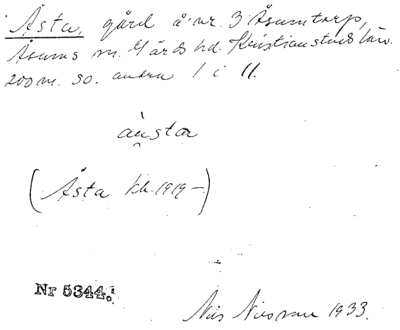 Åsta, gård å nr. 3 Åsumtorp,
Åsums sn. Gärds hd. Kristianstads län.
200 m. so. andra l i ll.
åusta
(Åsta kb. 1919-)
Nr 5344.
Nils Nilsson 1933.